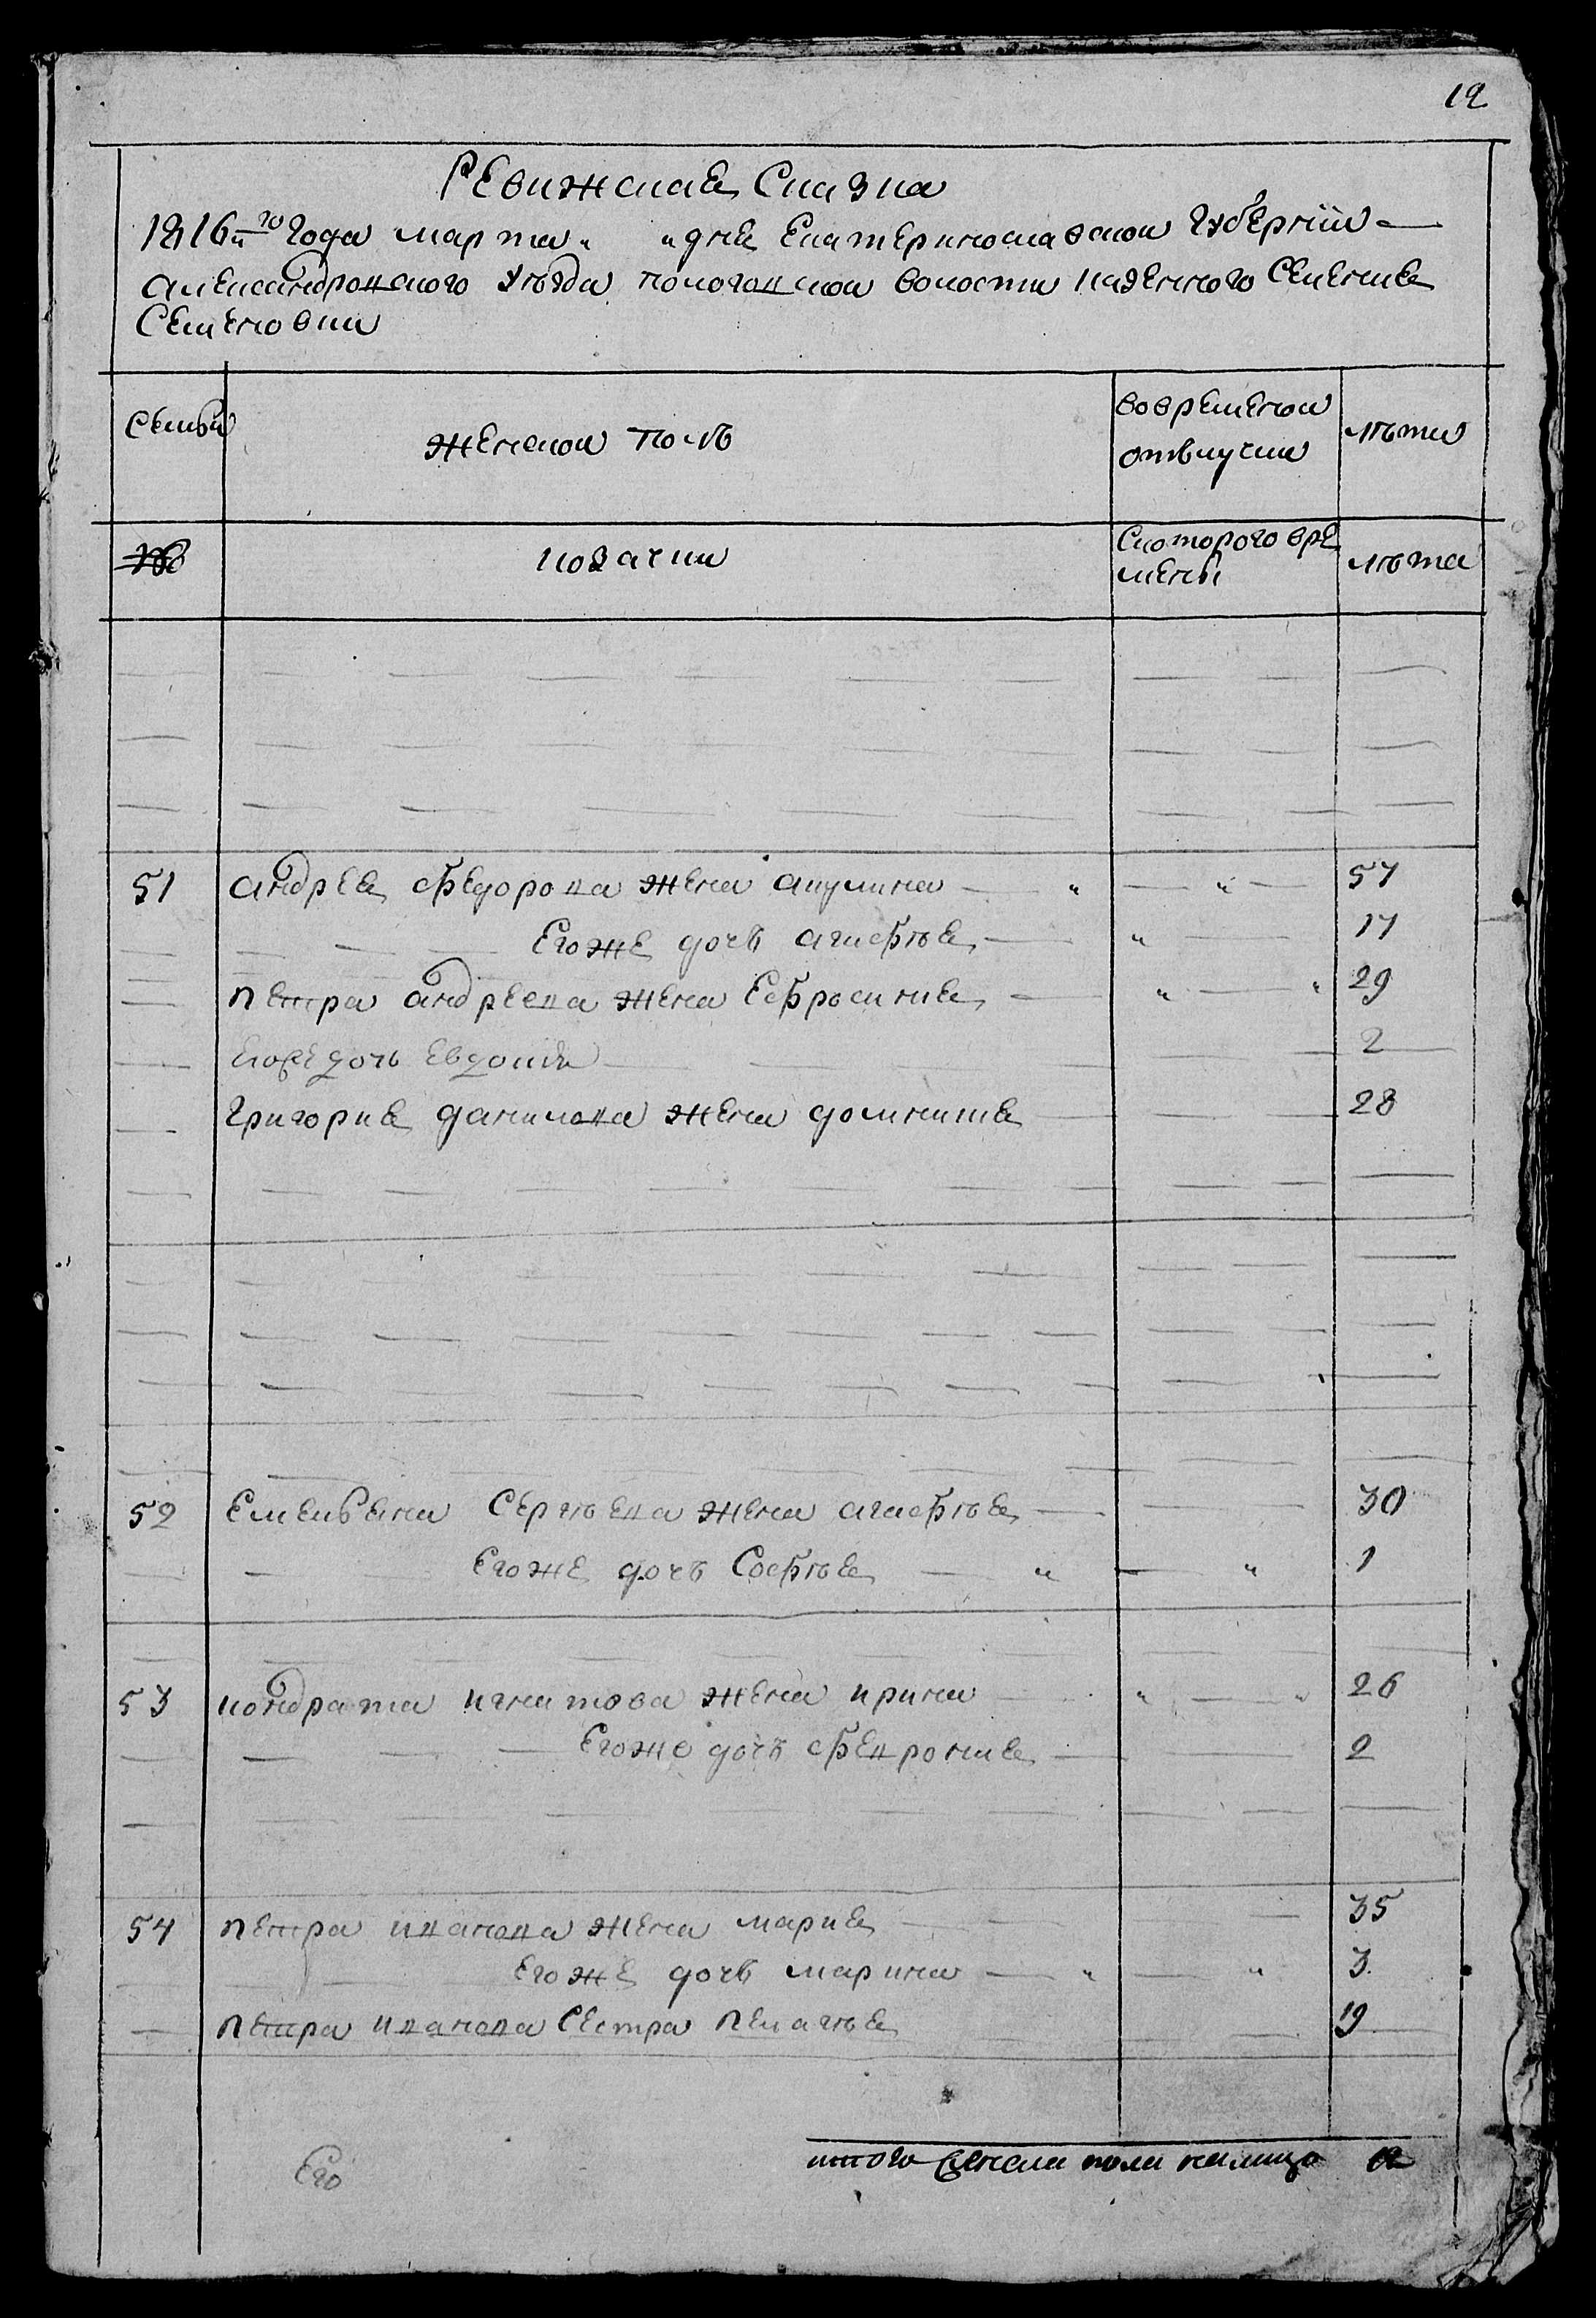 12
Ревижская Сказка
1816го года марта „ „ дня Екатеринославской Губернии
александровского уѣзда пологовской волости казенного селения
Семеновки
Семьи
женской полъ
вовременой
отълучки
лѣты
№
козачки
Скоторого вре
мены
лѣта
51 андрея федорова жена акулина 57
Егоже дочь агафѣя 17
петра андреева жена Ефросиния 29
Егоже дочь Евдокия 2
григория данилова жена домникия 28
52 Емельяна Сергѣева жена агафѣя 30
Егоже дочь Софѣя 1
53 кондрата игнатова жена ирина 26
Егоже дочь феврония 2
54 петра иванова жена мария 35
Егоже дочь марина 3
петра иванова Сестра пелагѣя 19
итого женска пола налицо 12
Его